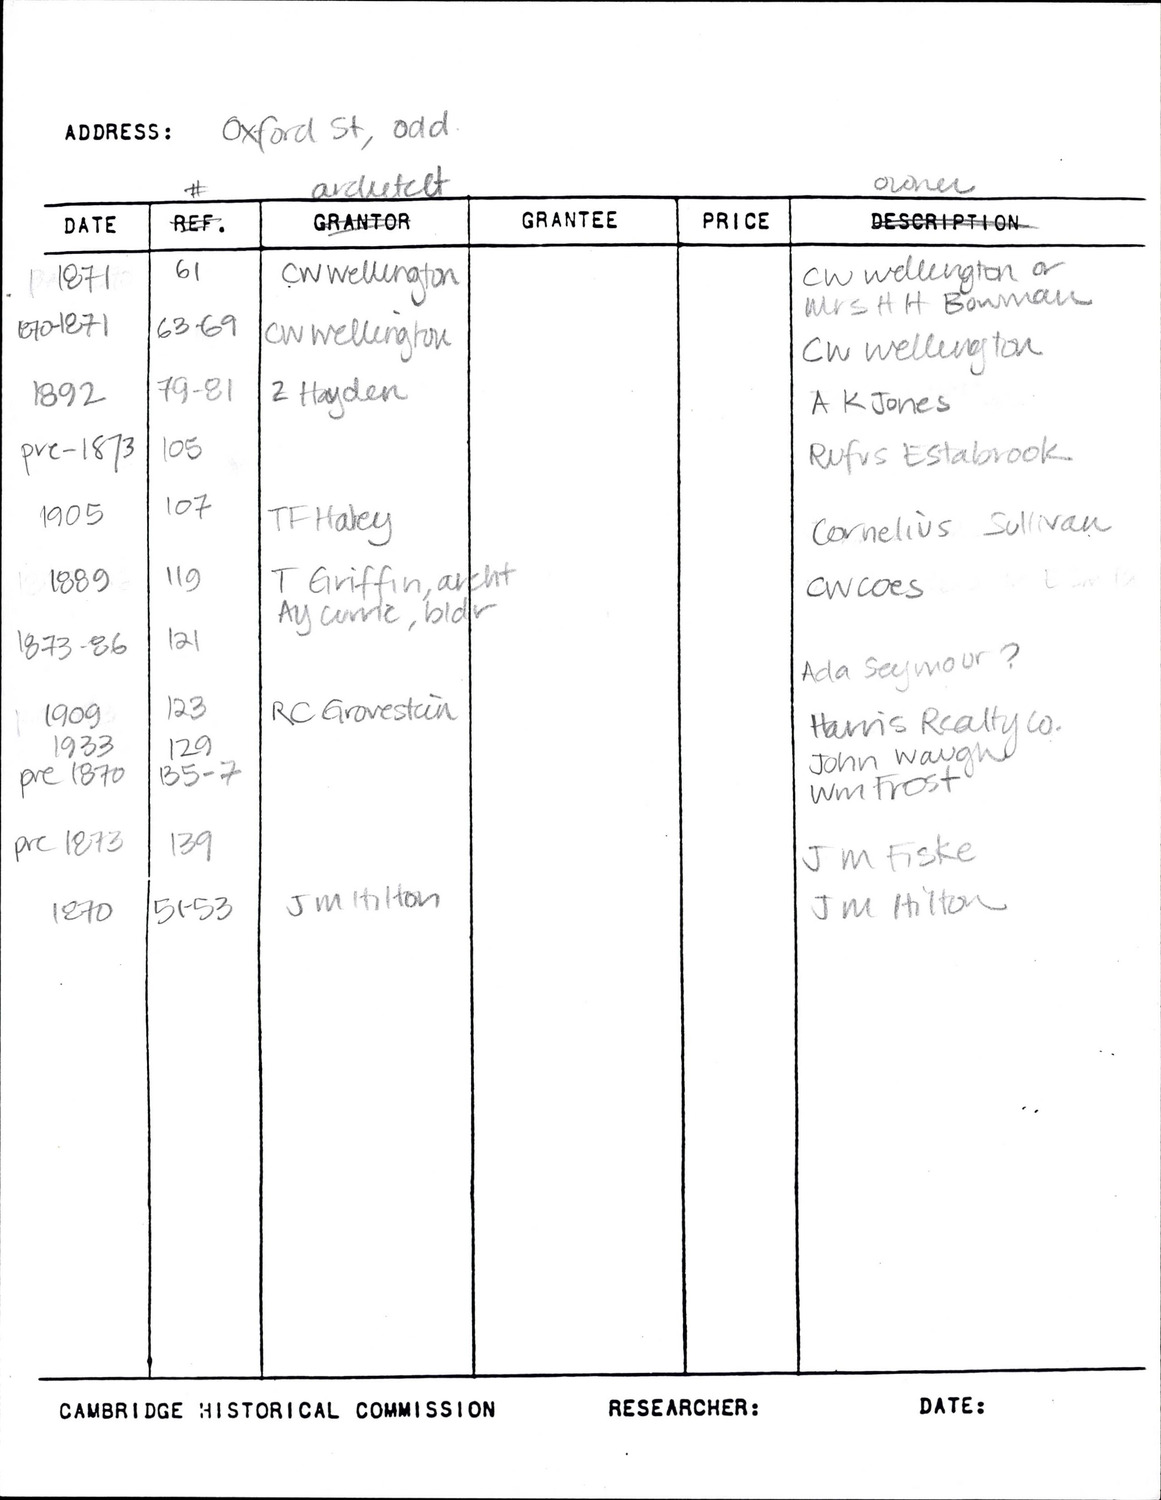 ADDRESS: Oxford St, odd
# architect owner
DATE REF. GRANTOR GRANTEE PRICE DESCRIPTION
1871 61 CW Wellington CW Wellington or
Mrs H H Bowman
1870-1871 63-69 CW Wellington CW Wellington
1892 79-81 Z Hayden A K Jones
pre-1873 105 Rufus Estabrook
1905 107 TF Haley Cornelius Sullivan
1889 119 T Griffin, archt CW Coes
AJ Currie, bldr
1873-86 121 Ada Seymour?
1909 123 RC Grovestein Harris Realty Co.
1933 129 John Waugh
pre 1870 135-7 Wm Frost
pre 1873 139 J M Fiske
1870 51-53 J M Hilton J M Hilton
CAMBRIDGE HISTORICAL COMMISSION RESEARCHER: DATE: